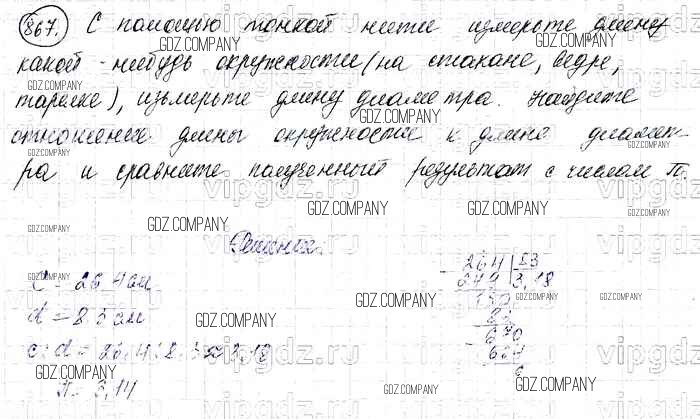 867. С помощью тонкой нити измерьте длину
какой-нибудь окружности (на стакане, ведре,
тарелке), измерьте длину диаметра. Найдите
отношение длины окружности к длине диамет-
ра и сравните полученный результат с числом π.
Решение.
C = 26.4 см
d = 8.3 см
c : d = 26.4 : 8.3 ≈ 3,18
π = 3,14
264 | 83
249 | 3,18
150
83
670
664
6
GDZ.COMPANY
vipgdz.ru